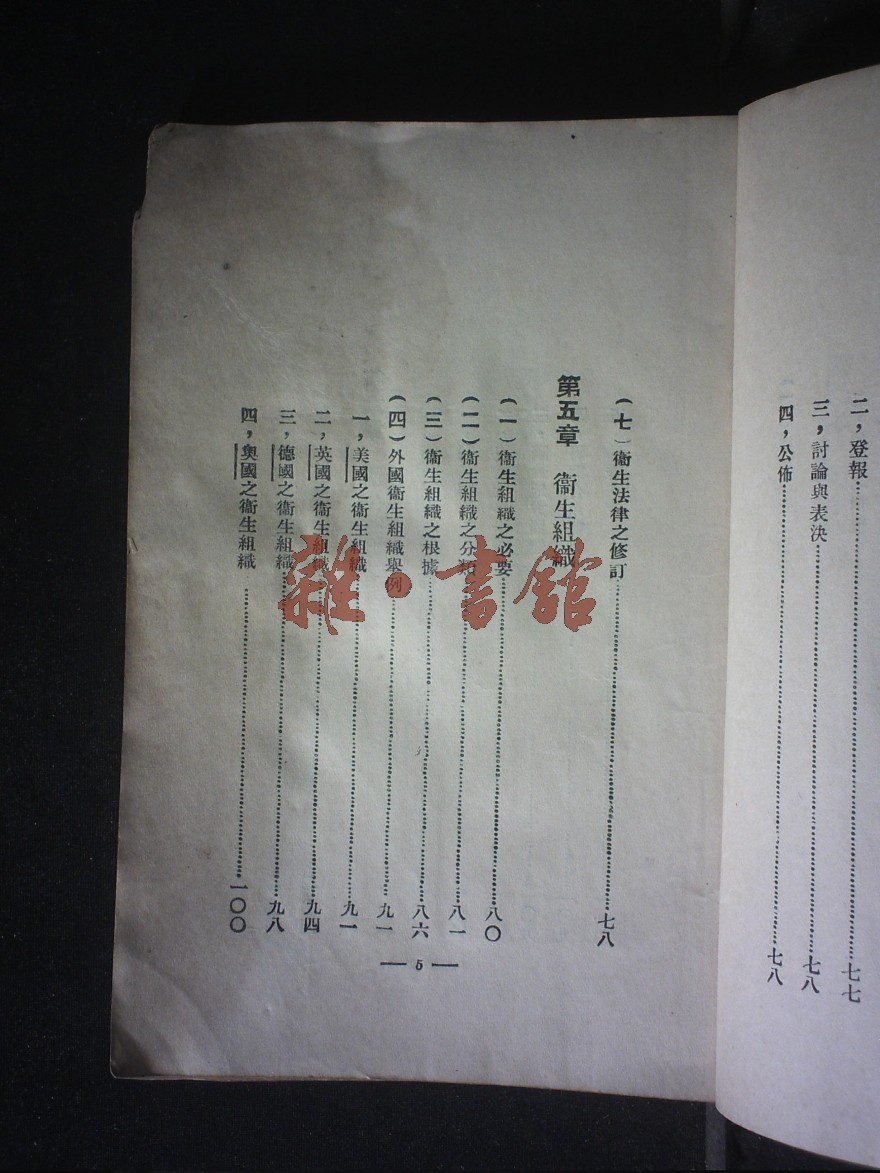 二，登報……七七
三，討論與表決……七八
四，公佈……七八
（七）衞生法律之修訂……七八
第五章　衞生組織
（一）衞生組織之必要……八〇
（二）衞生組織之分類……八一
（三）衞生組織之根據……八六
（四）外國衞生組織舉例……九一
一，美國之衞生組織……九一
二，英國之衞生組織……九四
三，德國之衞生組織……九八
四，奧國之衞生組織……一〇〇
— 5 —
雜·書館